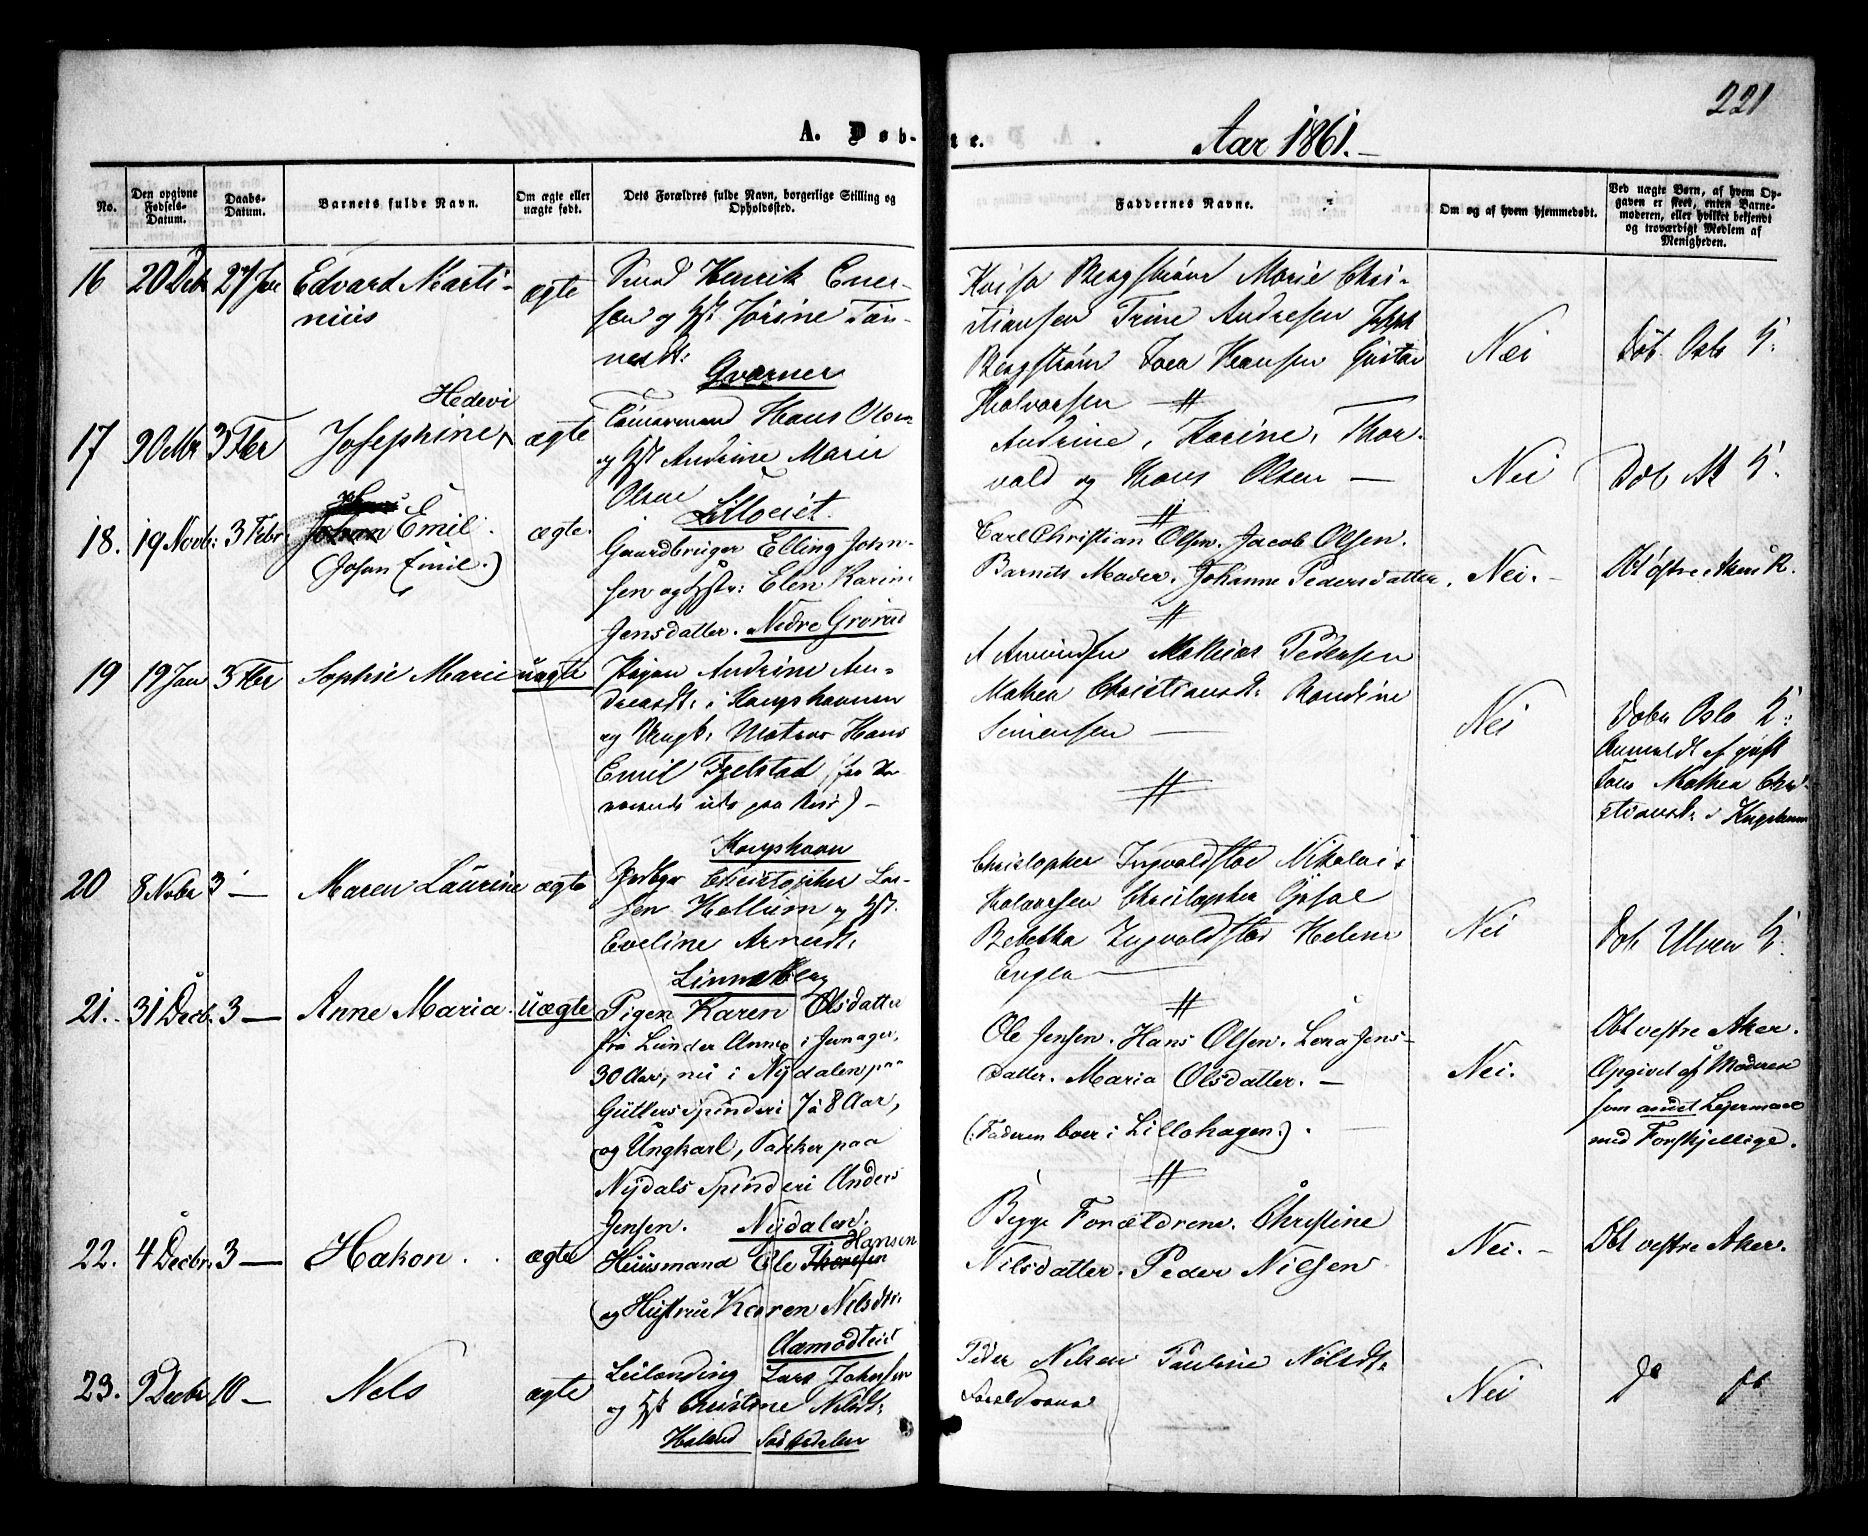 221
A. Døb-
te.
Aar 1861.
No.
Den opgivne Fødsels-Datum.
Daabs-Datum.
Barnets fulde Navn.
Om ægte eller uægte født.
Dets Forældres fulde Navn, borgerlige Stilling og Opholdssted.
Faddernes Navne.
Om og af hvem hjemmedøbt.
Ved uægte Børn, af hvem Opgaven er skeet, enten Barnemoderen, eller hvilket bekjendt og troværdigt Medlem af Menigheden.
16 20 Decb 27 Jan Edvard Marti-
nius
ægte
Smed Henrik Ener-
sen og Hst Jørine Tøn-
nesdt:
Gverner
Kaisa Bergstrøm Marie Chri-
stiansen Trine Andresen
Bergstrøm Hansen Gustav
Halvorsen
Nei
Døb. Oslo K:
17 9 3 Fbr Josephine Hedevi
ægte
Tømermand Hans Olsen
og Hst Andrine Marie
Olsen Lilloeiet.
Andrine, Karine, Thor-
vald og Hans Olsen —
Nei
Døb K
18. 19 Novb: 3 Febr. Johan Emil.
(Johan Emil.)
ægte.
Gaardbruger Elling John-
sen og Hstr: Elen Karin
Jensdatter. Nedre Grorud
Carl Christian Olsen. Jacob Olsen.
Barnets Moder. Johanne Pedersdatter.
Nei.-
Dbt østre Akers K.
19 19 Jan 3 Fbr Sophie Marie
uægte
Pigen Andrine An-
dreasdt: i Kongshavnen
og Ungk: Matros Hans
Emil Fjelstad (for nær-
værende ude paa Reise) —
Kongshavn
A Amundsen Mathias Pedersen
Mathea Christiansdt: Randine
Simensen —
Nei
Døbt Oslo K:
Anmeldt af gift
Kone Mathea Chri-
stiansdt: i Kngshavn
20 8 Novbr 3 — Maren Laurine
ægte
Christopher Lar-
sen Hellum og Hst.
Eveline Arnesdt:
Linneberg
Christopher Ingvoldstad Nikolai
Halvorsen Christopher
Rebekka Ingvoldstad Helene
Engla —
Nei
Døb Ulven K.
21. 31 Decb. 3 — Anne Maria.
uægte
Pigen Karen Olsdatter
fra Lunder Annex i Jevnager,
30 Aar, nu i Nydalen paa
Gullers Spinderi 7 à 8 Aar,
og Ungkarl, Pakker paa
Nydals Spinderi Anders
Jensen. Nydalen.
Ole Jensen. Hans Olsen. Lora Jens-
datter. Maria Olsdatter. —
(: Faderen boer i Lillohagen.).
Nei.
Dbt vestre Aker.
Opgivet af Moderen
som andet Lejermaal
med Forskjellige.
22. 4 Decbr. 3 — Hakon.
ægte
Huusmand Ole Thoresen Hansen
og Hustrue Karen Nilsdtr.
Aamodteiet
Begge Forældrene. Christine
Nilsdatter. Peder Nielsen
Nei.-
Dbt vestre Aker.
23. 9 Decbr 10 — Nels
ægte
Leilending Lars Johnsen
og Hst Christine Nelsdt:
Peder Nelsen Pauline Nelsdt:
Forældrene
Nei
do do